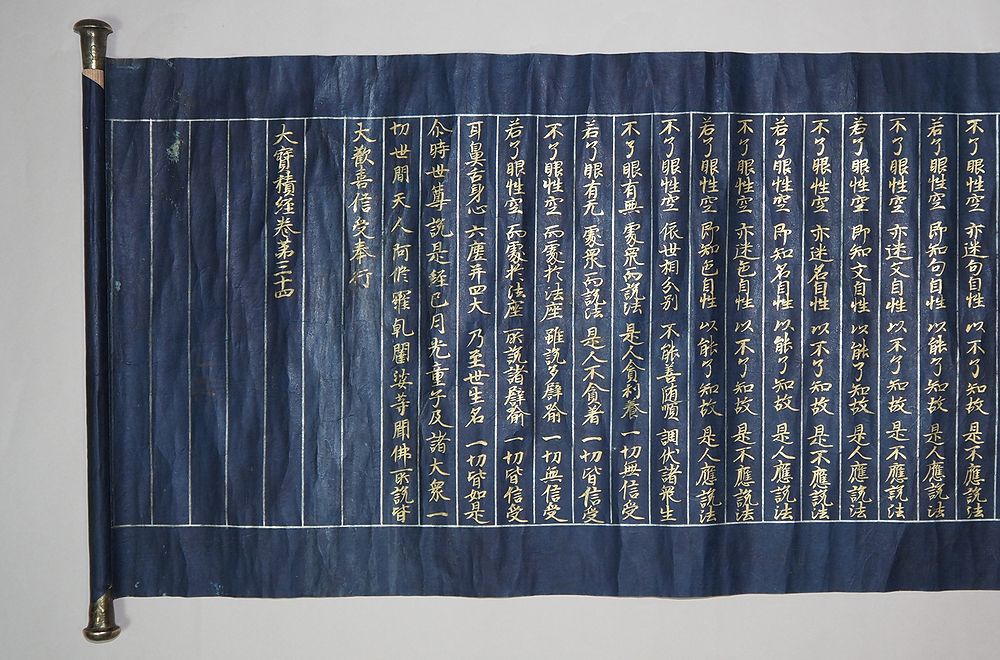 不了眼性空 亦迷句自性 以不了知故 是不應說法
若了眼性空 即知句自性 以能了知故 是人應說法
不了眼性空 亦迷文自性 以不了知故 是不應說法
若了眼性空 即知文自性 以能了知故 是人應說法
不了眼性空 亦迷名自性 以不了知故 是不應說法
若了眼性空 即知名自性 以能了知故 是人應說法
不了眼性空 亦迷色自性 以不了知故 是不應說法
若了眼性空 即知色自性 以能了知故 是人應說法
不了眼性空 依世相分別 不能善随順 調伏諸衆生
不了眼有無 處衆而說法 是人貪利養 一切無信受
若了眼有无 處衆而說法 是人不貪著 一切皆信受
不了眼性空 而處於法座 雖說多譬喻 一切無信受
若了眼性空 而處於法座 所說諸譬喻 一切皆信受
耳鼻舌身心 六塵并四大 乃至世生名 一切皆如是
尒時世尊說是經已月光童子及諸大衆一
切世間天人阿脩羅乹闥婆等聞佛所說皆
大歡喜信受奉行
大寶積経卷第三十四